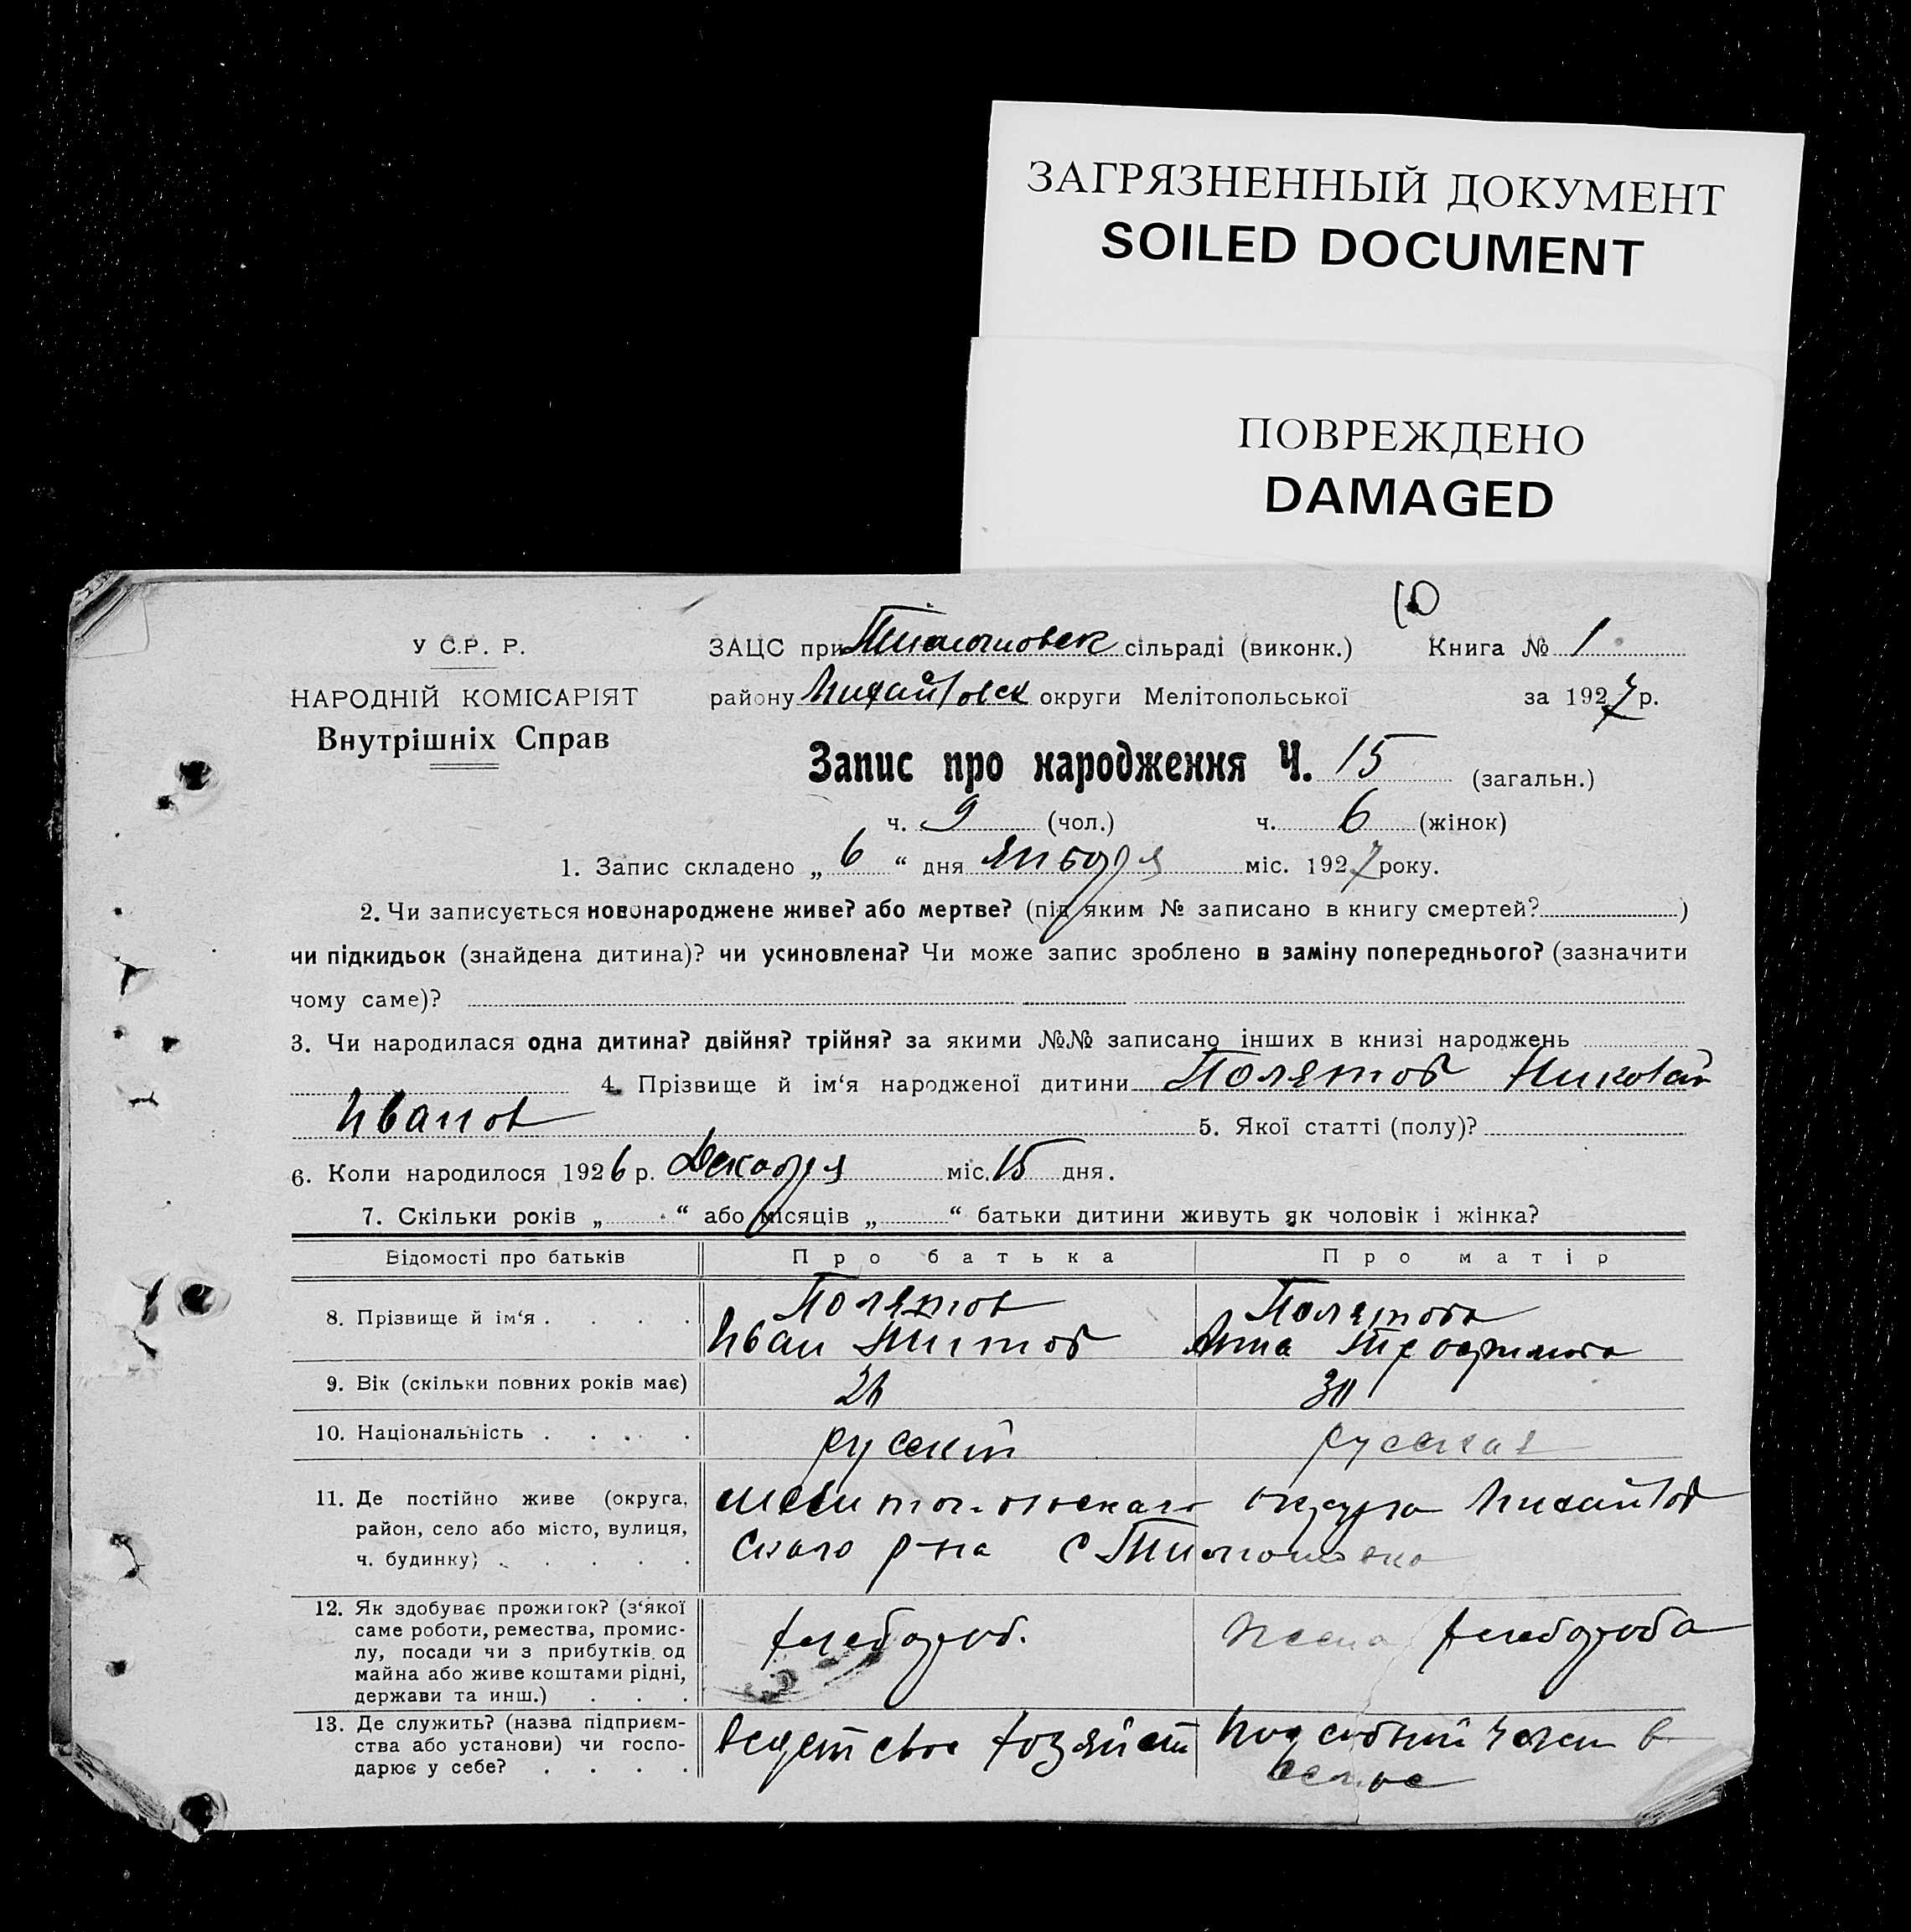 ЗАГРЯЗНЕННЫЙ ДОКУМЕНТ
SOILED DOCUMENT
ПОВРЕЖДЕНО
DAMAGED
10
У С.Р. Р.
ЗАЦС при Тимошовск сільраді (виконк.) Книга № 1
НАРОДНІЙ КОМІСАРІЯТ
району Михайловск округи Мелітопольської за 1927 р.
Внутрішніх Справ
Запис про народження Ч. 15 (загальн.)
ч. 9 (чол.) ч. 6 (жінок)
1. Запис складено „ 6 “ дня января міс. 1927 року.
2. Чи записується новонароджене живе? або мертве? (під яким № записано в книгу смертей? )
чи підкидьок (знайдена дитина)? чи усиновлена? Чи може запис зроблено в заміну попереднього? (зазначити
чому саме)?
3. Чи народилася одна дитина? двійня? трійня? за якими №№ записано інших в книзі народжень
4. Прізвище й ім‘я народженої дитини Полятов Николай
Иванов 5. Якої статті (полу)?
6. Коли народилося 1926 р. Декабря міс. 15 дня.
7. Скільки років „ “ або місяців „ “ батьки дитини живуть як чоловік і жінка?
Відомості про батьків Про батька Про матір
8. Прізвище й ім‘я . . . . Полятов Полятова
Иван Титов Анна Трофимова
9. Вік (скільки повних років має)
10. Національність . . . . русский русская
11. Де постійно живе (округа, Мелитопольскаго округа Михайлов
район, село або місто, вулиця, скаго р-на с Тимошовка
ч. будинку) . . . . .
12. Як здобуває прожиток? (з‘якої
саме роботи, ремества, промис- хлебороб. жена хлебороба
лу, посади чи з прибутків од
майна або живе коштами рідні,
держави та инш.) . . .
13. Де служить? (назва підприєм- ведет свое хозяйств подсобный член в
ства або установи) чи госпо- семье
дарює у себе? . . . .